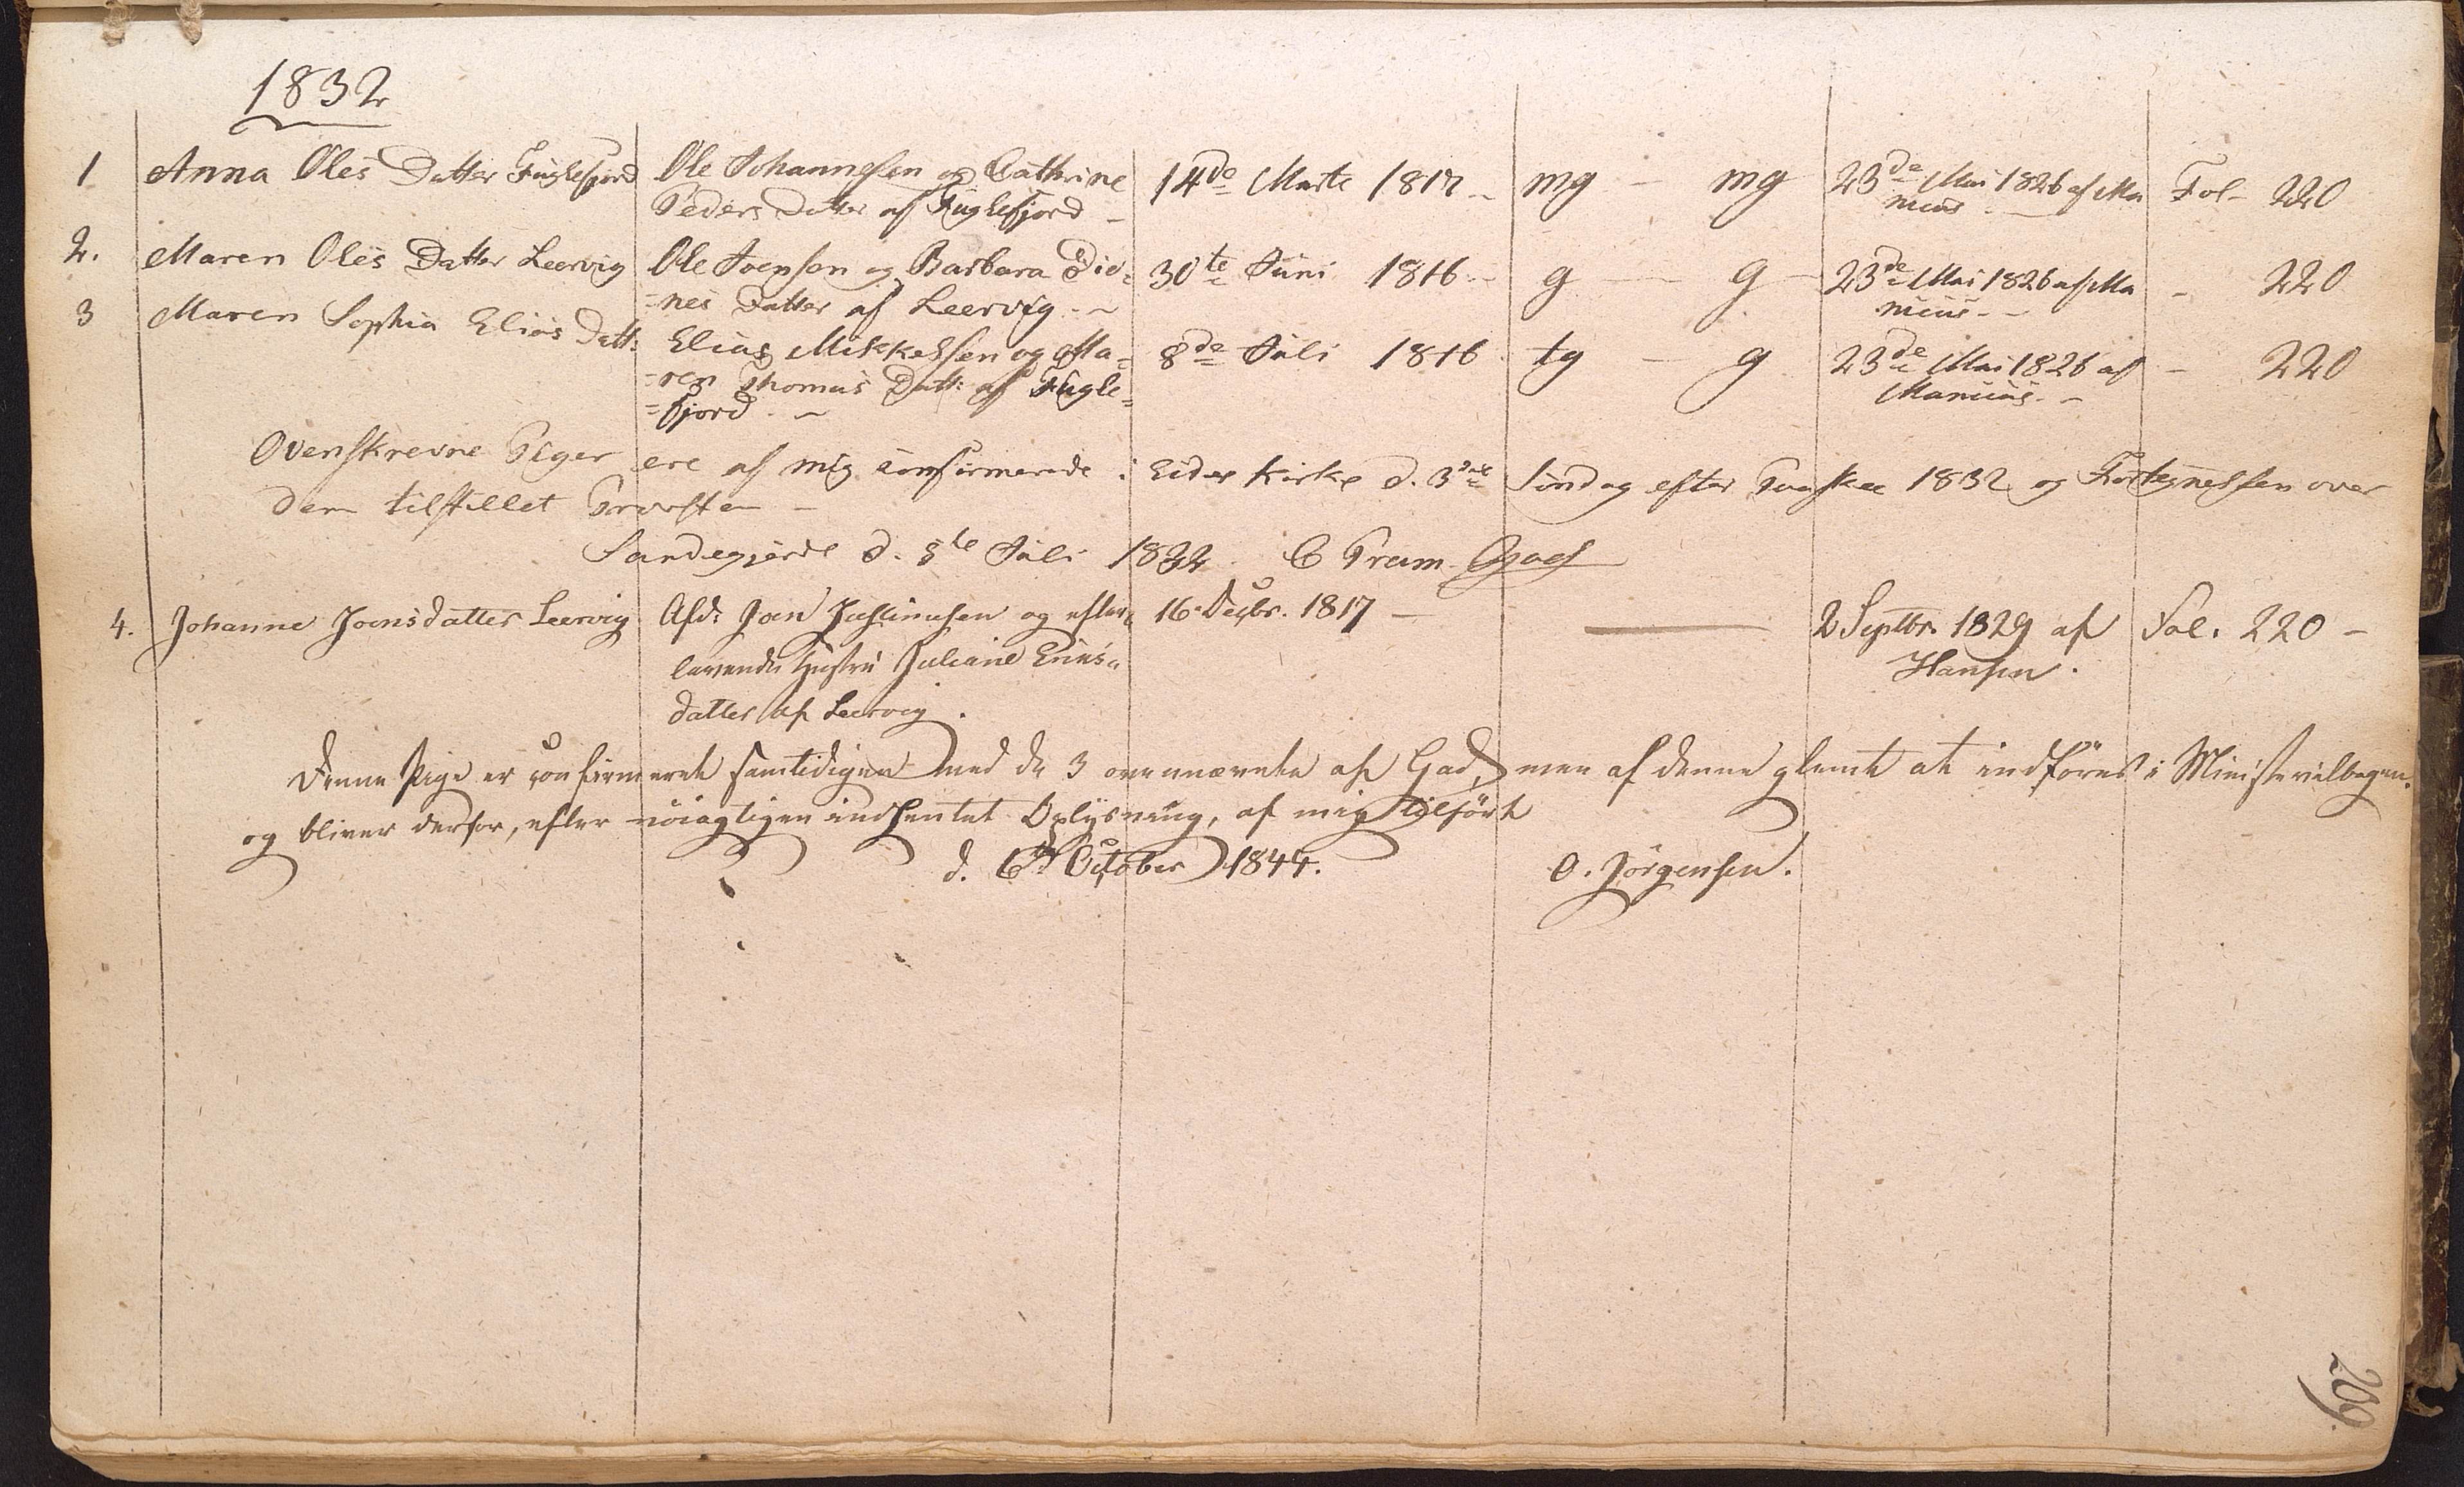 1832
1 Anna Oles Datter Fuglefjord Ole Johannesen og Cathrine 14de Marts 1817 mg - mg 23de Mai 1826 af Ma Fol- 220
Peders Datter af Fuglefjord - nicus -
2. Maren Oles Datter Leervig Ole Joensen og Barbara Dio= 30te Juni 1816 - g - g - 23de Mai 1826 af Ma - 220
=nes Datter af Leervig - nicus -
3 Maren Sophia Elias Datt: Elias Mikkelsen og Ma= 8de Juli 1816 tg - g 23de Mai 1826 af - 220
=ren Thomas Datt: af Fugle= Manicus -
=fjord -
Ovenskrevne Piger ere af mig confirmerede i Eides Kirke d. 3die Søndag efter Paaske 1832 og Fortegnelsen over
dem tilstillet Provsten -
Sandegjerde d. 8de Juli 1832 C Pram Gad
4. Johanne Joensdatter Leervig Afd: Joen og efter= 16 Decbr. 1817 - 2 Septbr. 1829 af Fol. 220 -
levende Hustru Juliane
Hansen.
datter af Leervig.
Denne Pige er confirmeret samtidigen med de 3 ovennævnte af Gad, men af denne glemt at indføres i Ministerialbogen,
og bliver derfor, efter nöiagtigen indhentet Oplysning, af mig tilført
d. 6te October 1844. O. Jörgensen.
209.